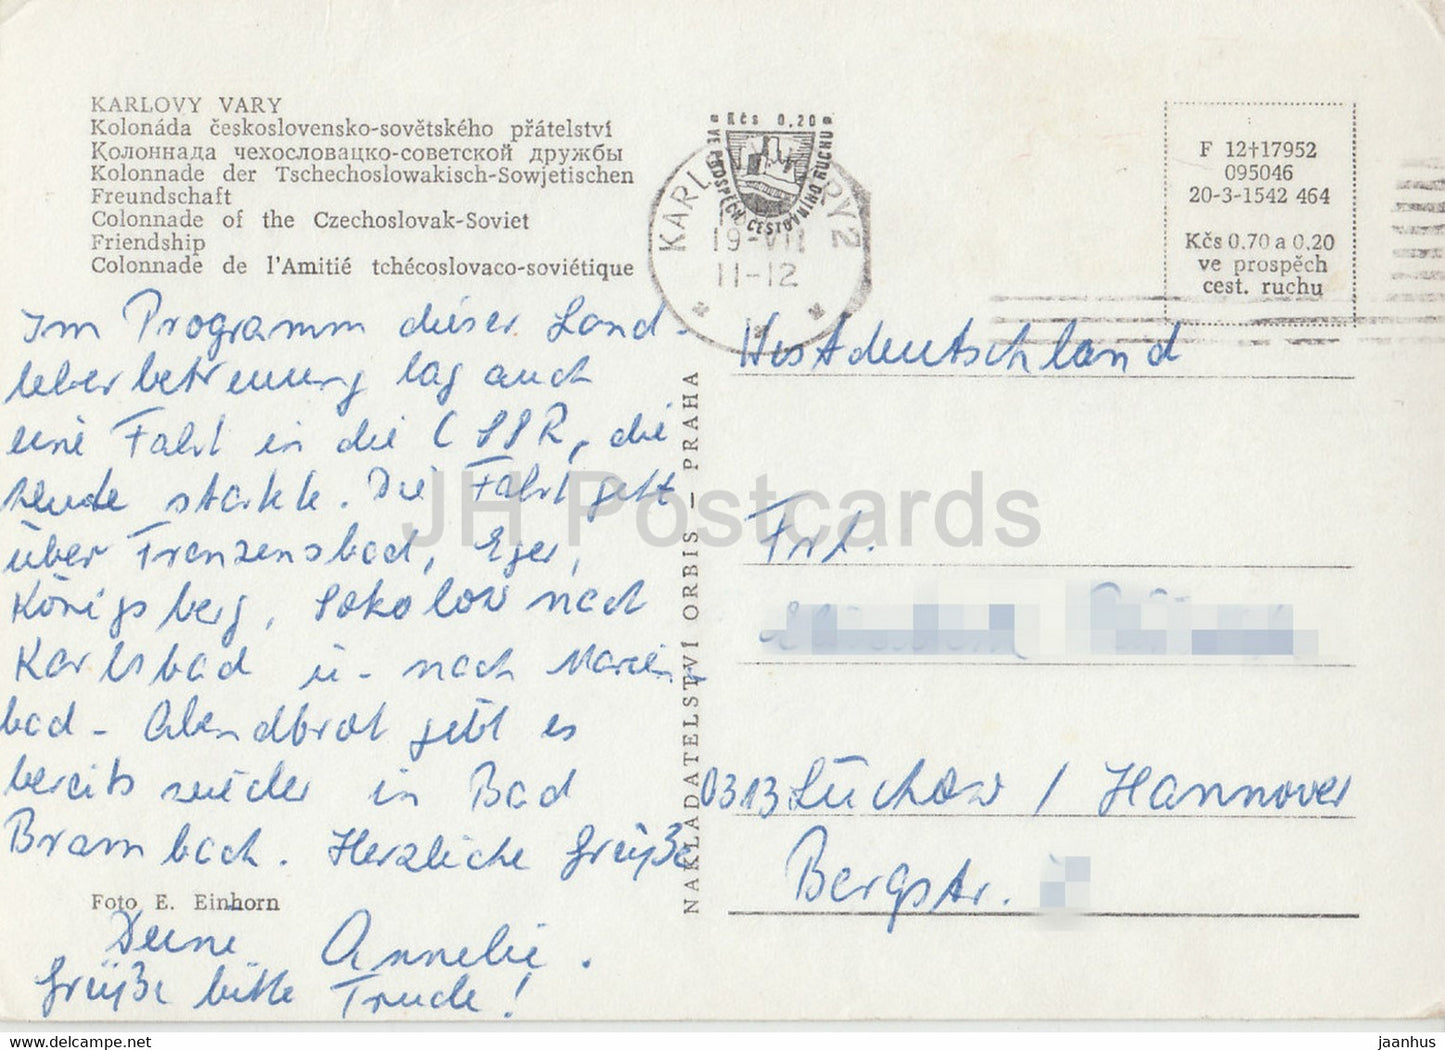 KARLOVY VARY
Kolonáda československo-sovětského přátelství
Колоннада чехословацко-советской дружбы
Kolonnade der Tschechoslowakisch-Sowjetischen
Freundschaft
Colonnade of the Czechoslovak-Soviet
Friendship
Colonnade de l'Amitié tchécoslovaco-soviétique
Im Programm dieser Land-
leberbetreuung lag auch
eine Fahrt in die CSSR, die
heute startete. Die Fahrt geht
über Franzensbad, Eger,
Königsberg, Sokolow nach
Karlsbad u. nach Marien-
bad - Abendbrot gibt es
bereits wieder in Bad
Brambach. Herzliche Grüße
Foto E. Einhorn
Deine Annelie.
Grüße bitte Trude!
NAKLADATELSTVÍ ORBIS — PRAHA
Kčs 0.20
VE PROSPĚCH CESTOVNÍHO RUCHU
KARL RY 2
19-VII
11-12
F 12†17952
095046
20-3-1542 464
Kčs 0.70 a 0.20
ve prospěch
cest. ruchu
Westdeutschland
Frl.
0313 Lüchow / Hannover
Bergstr.
JH Postcards
www.hippostcard.com
jaanhus